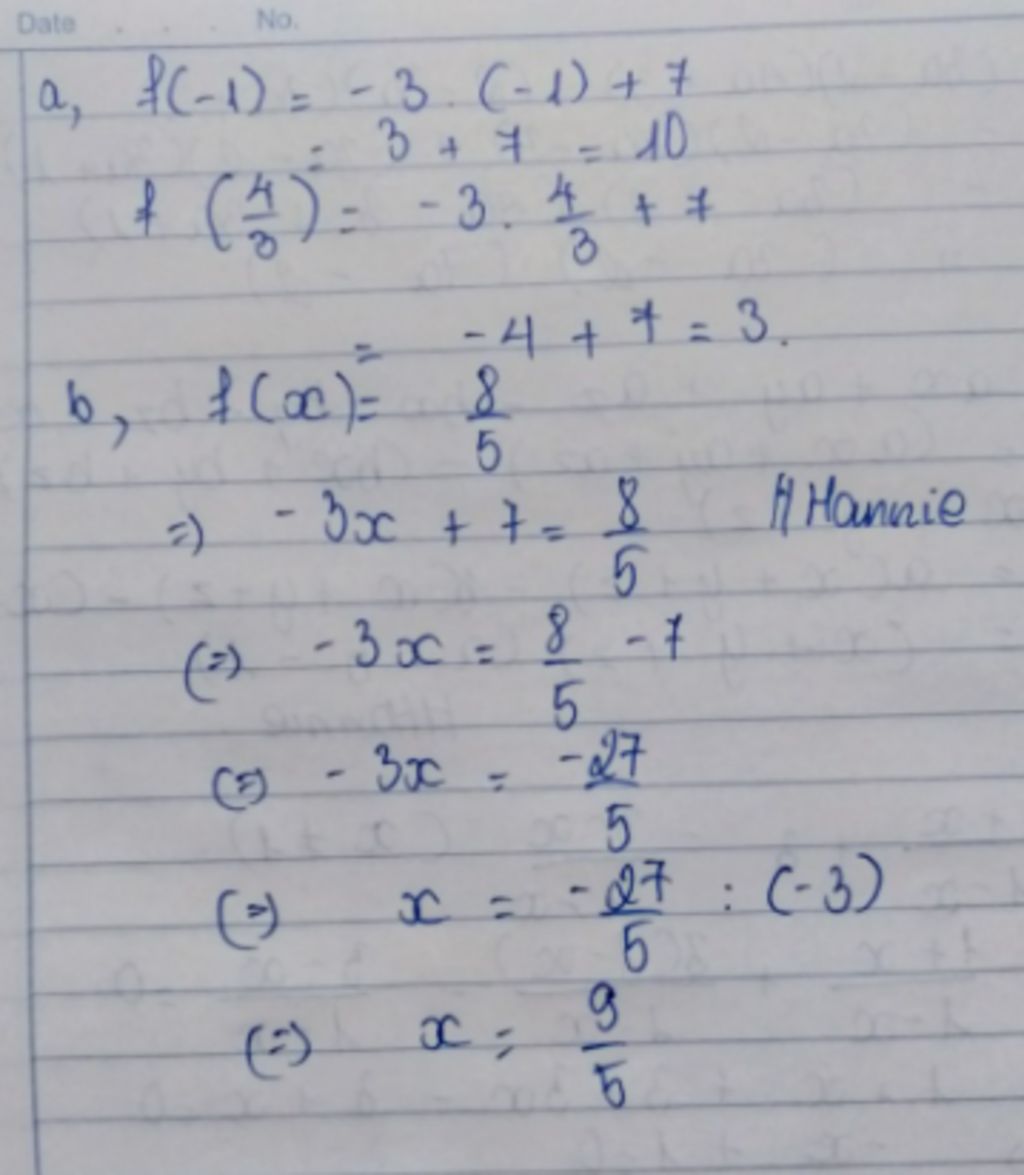 Date . . . No.
a, f(-1) = -3 . (-1) + 7
= 3 + 7 = 10
f (4/3) = -3 . 4/3 + 7
= -4 + 7 = 3.
b, f(x) = 8/5
=) -3x + 7 = 8/5 HHannie
(=) -3x = 8/5 - 7
(=) -3x = -27/5
(=) x = -27/5 : (-3)
(=) x = 9/5